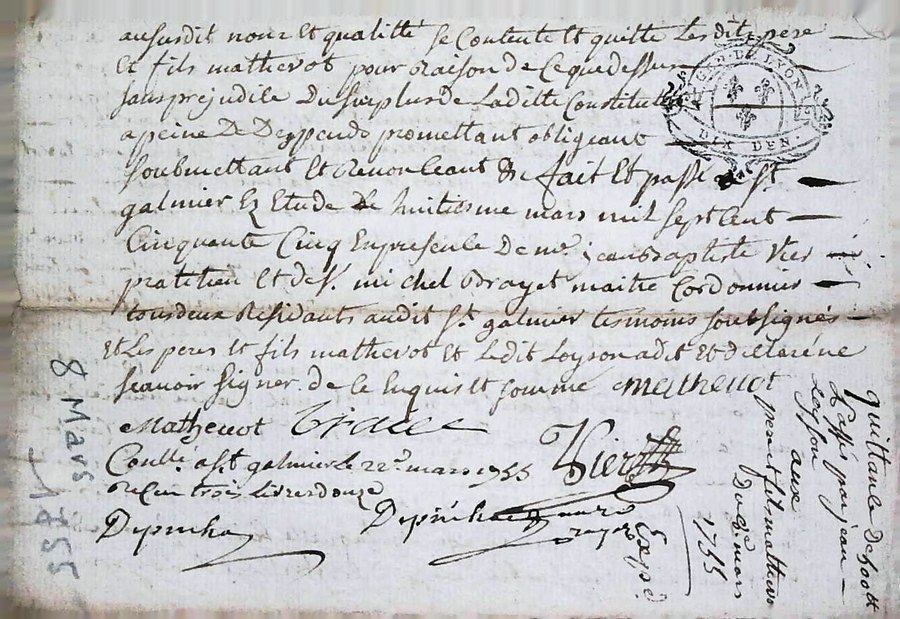 aususdit nom et qualitté se Contente et quitte Lesdits pere
et fils mathevot pour Raison de Ceque dessus
sans prejudice du surplus de Laditte Constitution
a peine de Depends promettant obligeant
soubmettant et Renonceant &c fait et passé a St
galmier Ez Etude Le huitiesme mars mil sept Cent
Cinquante Cinq En presence de mre jean Baptiste Vier
praticien et de sr michel Brayet maitre Cordonnier
tous deux Residants audit St galmier tesmoins soubsignés
et Les peres et fils mathevot et Ledit Loyson a dit et declaré ne
scavoir signer de ce Enquis et sommé mathevot
Mathevot
Conllé a St galmier le 22e mars 1755 Vier
Receu trois livres douze
Expé
quittance de
passé par jean
Loyson
aux
pere et fils mathevot
Du 8e mars
1755
8 Mars
1755
GEN. DE LYON
DIX DEN